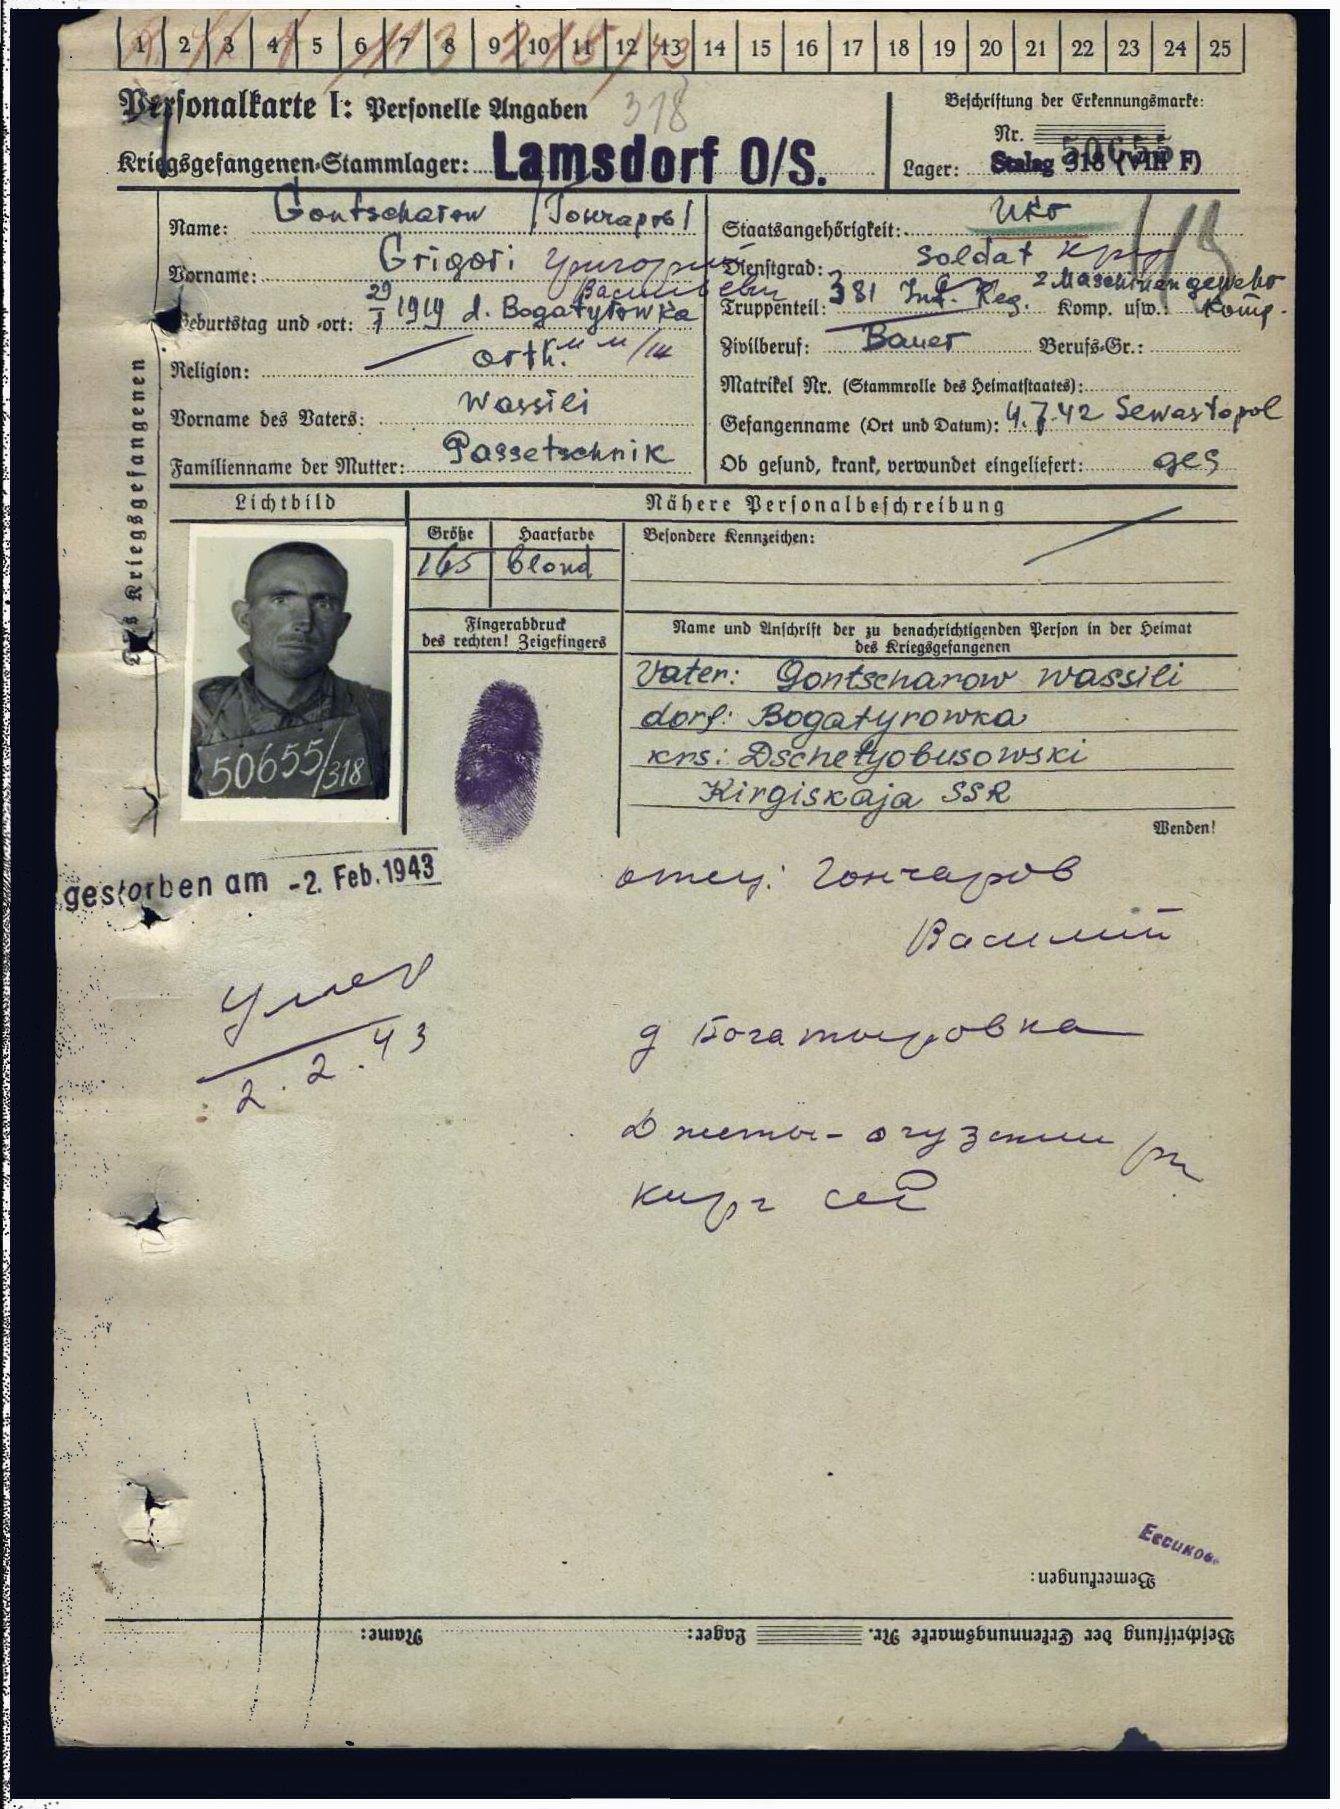 1 2 3 4 5 6 7 8 9 10 11 12 13 14 15 16 17 18 19 20 21 22 23 24 25
Personalkarte I: Personelle Angaben
318
Kriegsgefangenen-Stammlager: Lamsdorf O/S.
Beschriftung der Erkennungsmarke:
Nr. 50655
Lager: Stalag 318 (VIII F)
Name: Gontscharow /Гончаров/
Vorname: Grigori Григорий
Васильевич
Geburtstag und -ort: 29/I 1919 d. Bogatyrowka
Religion: Orth.
Vorname des Vaters: Wassili
Familienname der Mutter: Passetschnik
Staatsangehörigkeit: Ukr
Dienstgrad: Soldat Кр
Truppenteil: 381 Inf. Reg. Komp. usw.: 2 Maschinengewehr Komp.
Zivilberuf: Bauer Berufs-Gr.:
Matrikel Nr. (Stammrolle des Heimatstaates):
Gefangenname (Ort und Datum): 4.7.42 Sewastopol
Ob gesund, krank, verwundet eingeliefert: ges
Lichtbild
Nähere Personalbeschreibung
Größe Haarfarbe
165 blond
Besondere Kennzeichen:
Fingerabdruck
des rechten! Zeigefingers
Name und Anschrift der zu benachrichtigenden Person in der Heimat
des Kriegsgefangenen
Vater: Gontscharow Wassili
dorf: Bogatyrowka
krs: Dschetyobusowski
Kirgiskaja SSR
Wenden!
50655/318
gestorben am -2. Feb. 1943
Умер
2.2.43
отец: Гончаров
Василий
д Богатыровка
Джеты-огузский р/н
кирг ССР
Есиков
Bemerkungen:
Beschriftung der Erkennungsmarke Nr. Lager: Name: